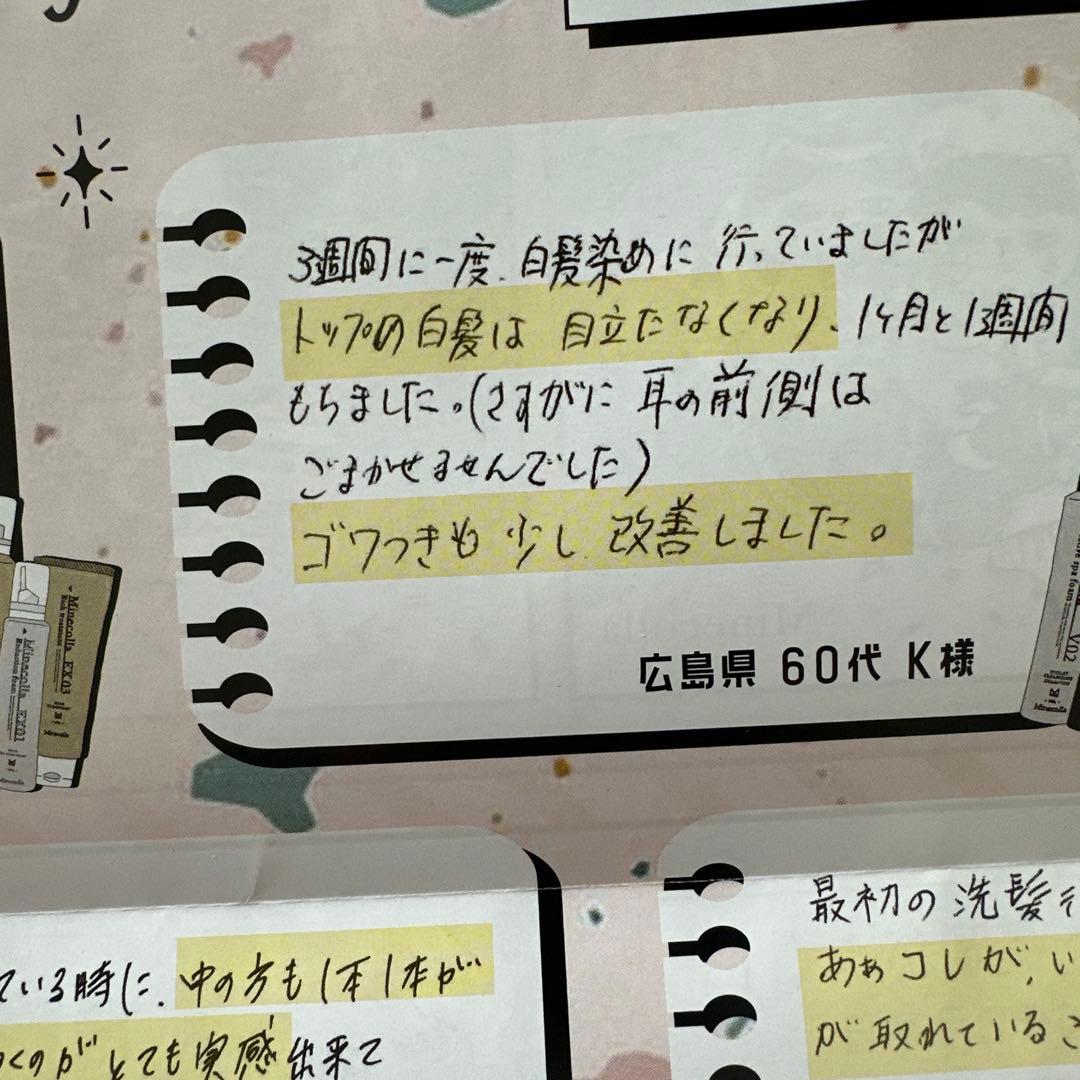 3週間に一度、白髪染めに行っていましたが
トップの白髪は 目立たなくなり、1ヶ月と1週間
もちました。(さすがに 耳の前側は
ごまかせませんでした)
ゴワつきも 少し 改善しました。
広島県 60代 K様
Minecolla EX03
Minecolla EX01
Reduction foam
V02
VIOLET
CLEANSING
SHAMPOO
Minecolla
ている時に、中の方も1本1本が
くのが とても実感出来て
最初の洗髪
あぁコレが、い
が取れている